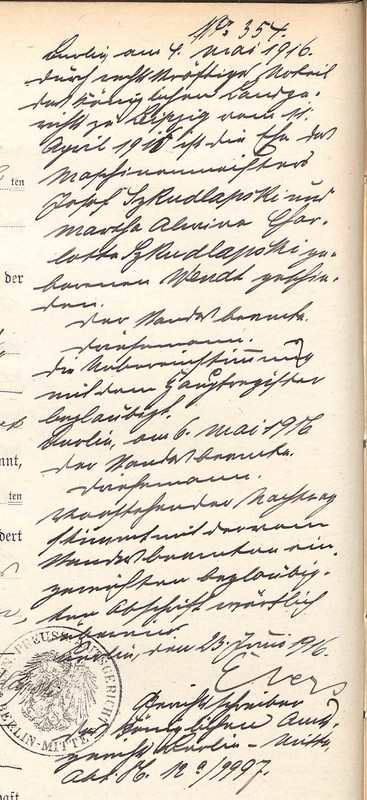 No. 354.
Berlin am 4. Mai 1916.
Durch rechtskräftiges Urteil
des Königlichen Landge-
richts zu Leipzig vom 11.
April 1916 ist die Ehe des
Maschinenmeisters
Josef Szkudlapski und
Martha Alwine Char-
lotte Szkudlapski ge-
borenen Wendt geschie-
den.
Der Standesbeamte.
Die Uebereinstimmung
mit dem Hauptregister
beglaubigt.
Berlin, am 6. Mai 1916
Der Standesbeamte.
Vorstehender Nachtrag
stimmt mit der vom
Standesbeamten ein-
gereichten beglaubig-
ten Abschrift wörtlich
überein.
Berlin, den 23. Juni 1916.
Evers
Gerichtsschreiber
des Königlichen Amts-
gerichts Berlin-Mitte
Abt.
ten
der
nnt,
ten
dert
PREUSS. AMTSGERICHT
BERLIN-MITTE